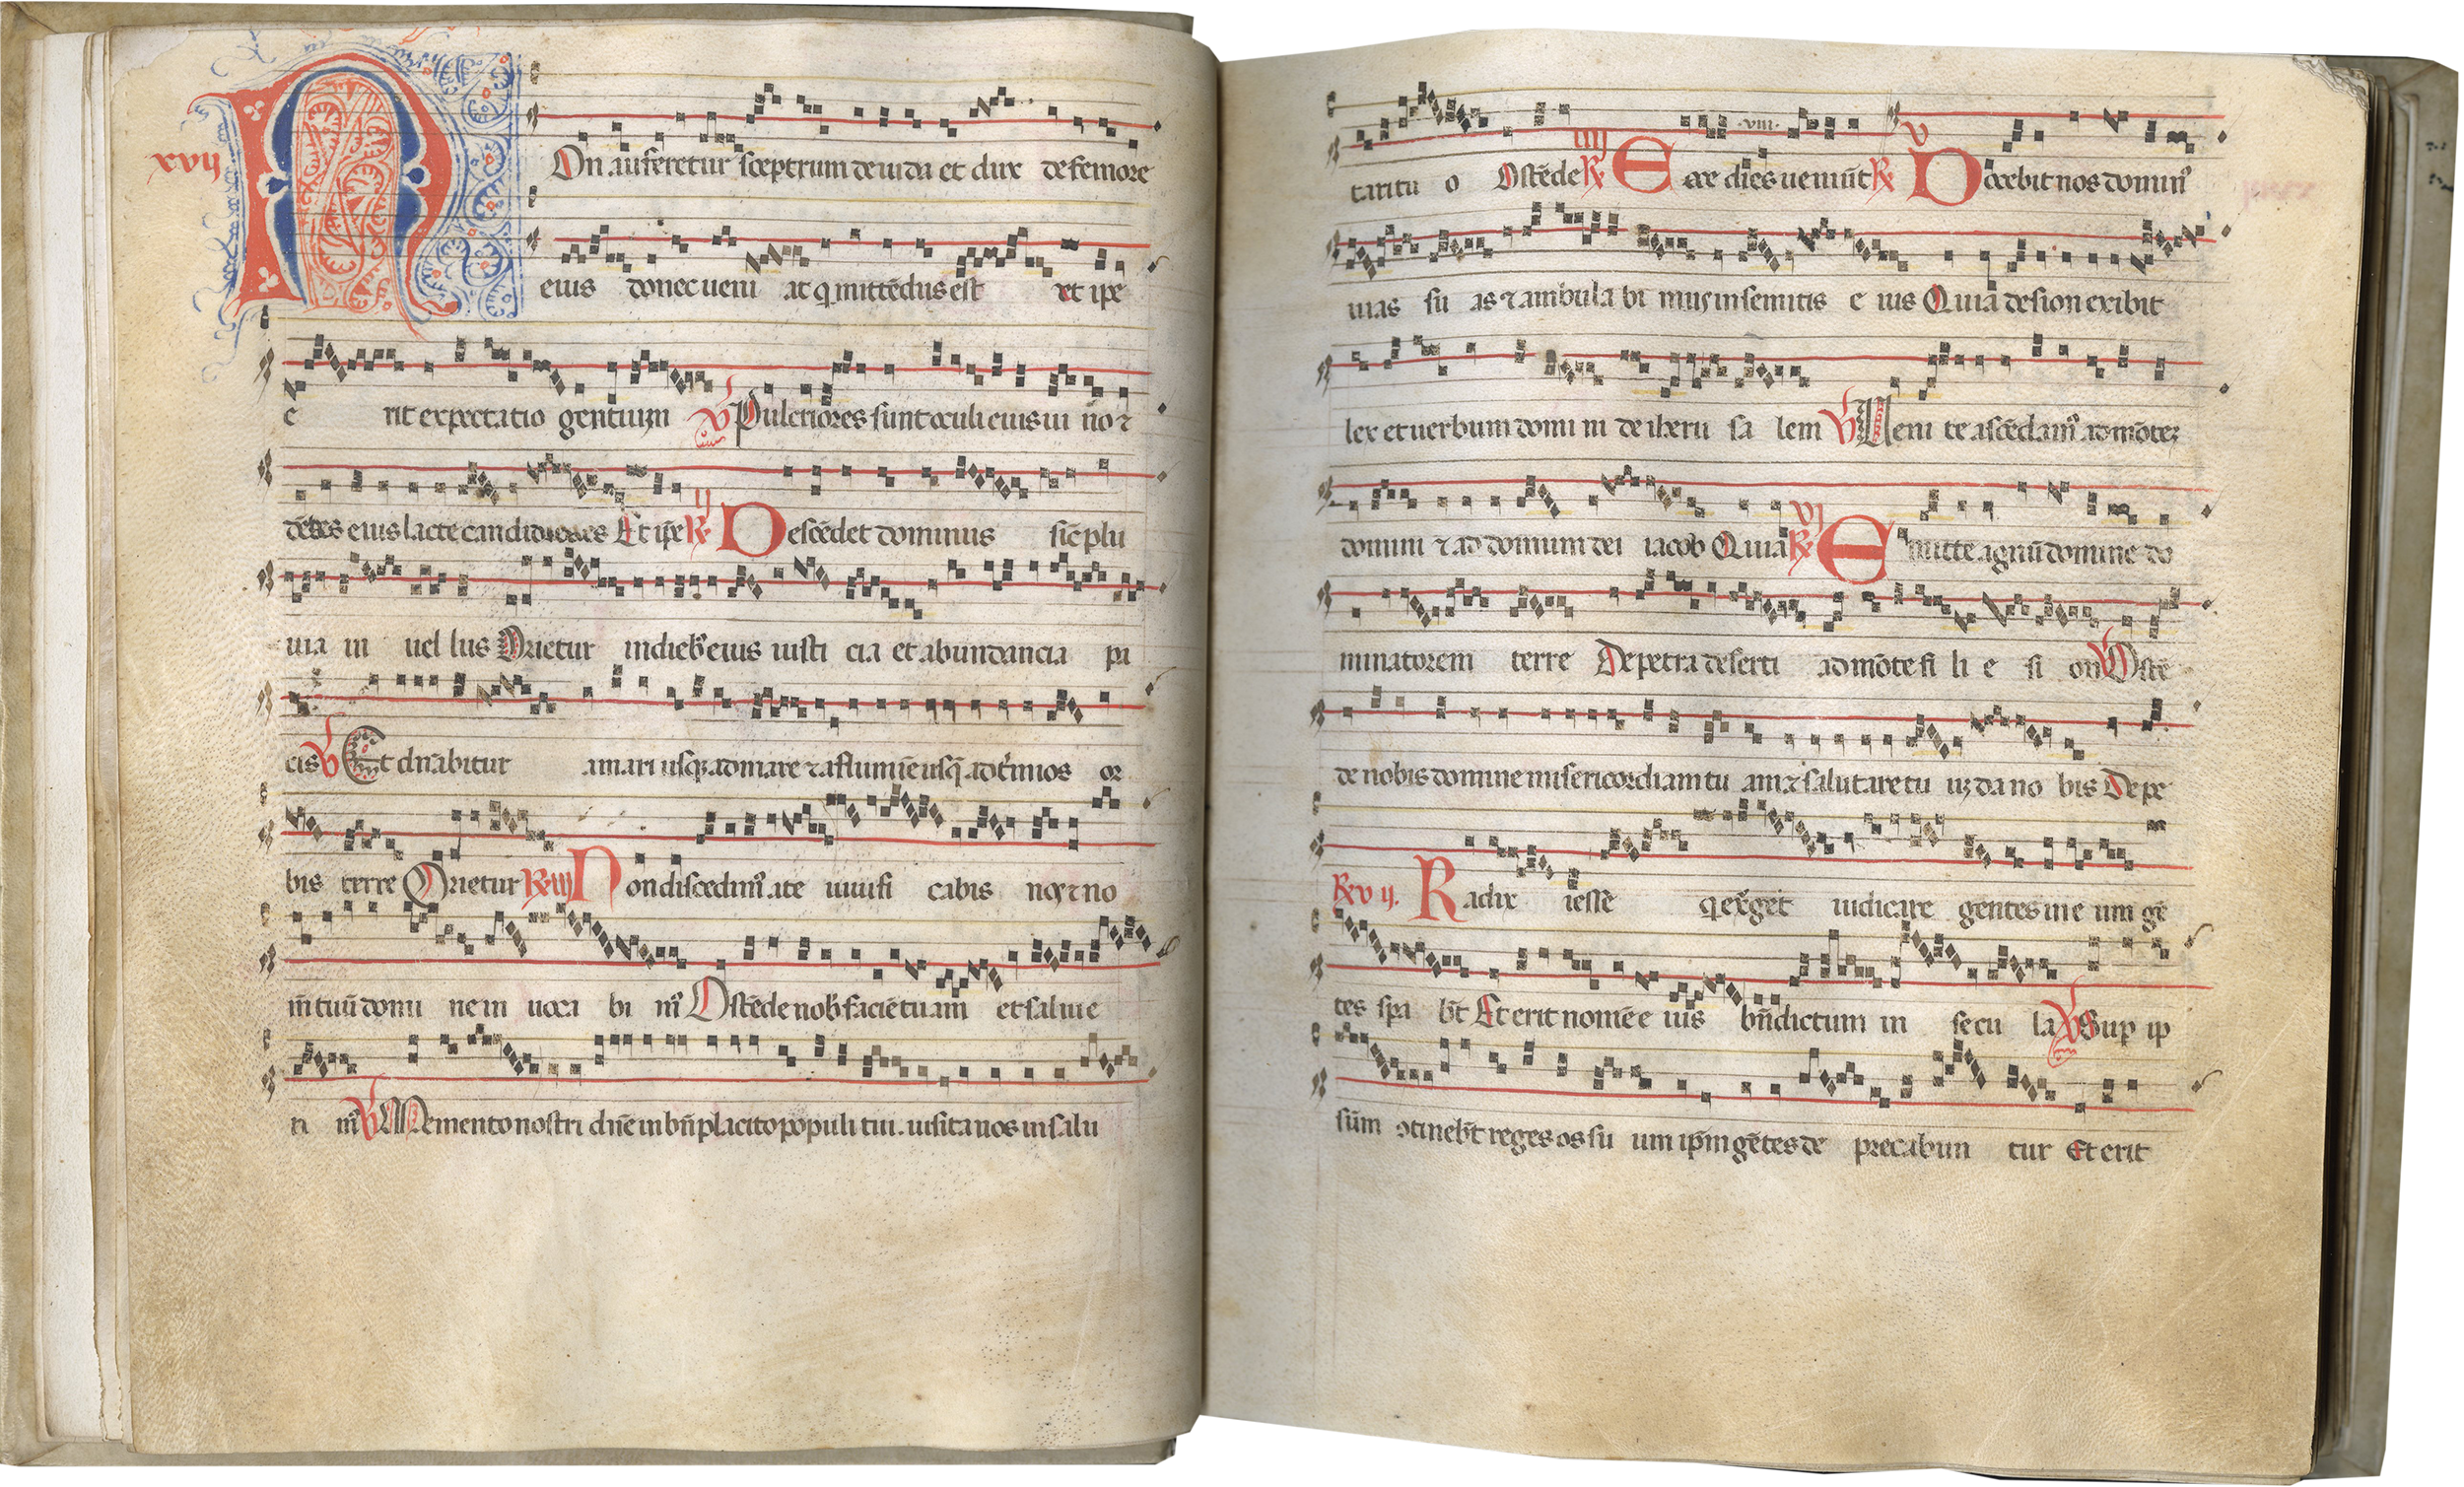 xvij
Non auferetur sceptrum de iuda et dux de femore
eius donec ueni at q mittēdus est et ipe
e rit expectatio gentium ℣ Pulcriores sunt oculi eius ui no ⁊
dētes eius lacte candidiores Et ip̄e ℟ ij Descēdet dominus sic̄ plu
uia in uel lus Orietur in dieb' eius iusti cia et abundancia pa
cis ℣ Et dn̄abitur a mari usq; ad mare ⁊ a flumīe usq̄ ad t'minos or
bis terre Orietur ℟ iij Non discedim' a te uiuifi cabis nos ⁊ no
m̄ tuū domi ne in uoca bi m' Ostēde nob' faciē tuam et salui e
ri m' ℣ Memento nostri dn̄e in bn̄placito populi tui. uisita nos in salu
tari tu o Ostēde ℟ iiij Ecce dies ueniūt .viii. ℟ v Docebit nos domin'
uias su as ⁊ ambula bi mus in semitis e ius Quia de sion exibit
lex et uerbum domi ni de iheru sa lem ℣ Ueni te ascēdam' ad mōtez
domini ⁊ ad domum dei iacob Quia ℟ vi Emitte agnū domine do
minatorem terre De petra deserti ad mōtē fi li e si on ℣ Ostē
de nobis domine misericordiam tu am ⁊ salutare tu uz da no bis De pe
℟ v ij. Radix iesse q exget iudicare gentes in e um gē
tes spa bt̄ Et erit nomē e ius bn̄dictum in secu la ℣ Sup ip
sūm otinebt̄ reges os su um ip̄m gētes de precabun tur Et erit